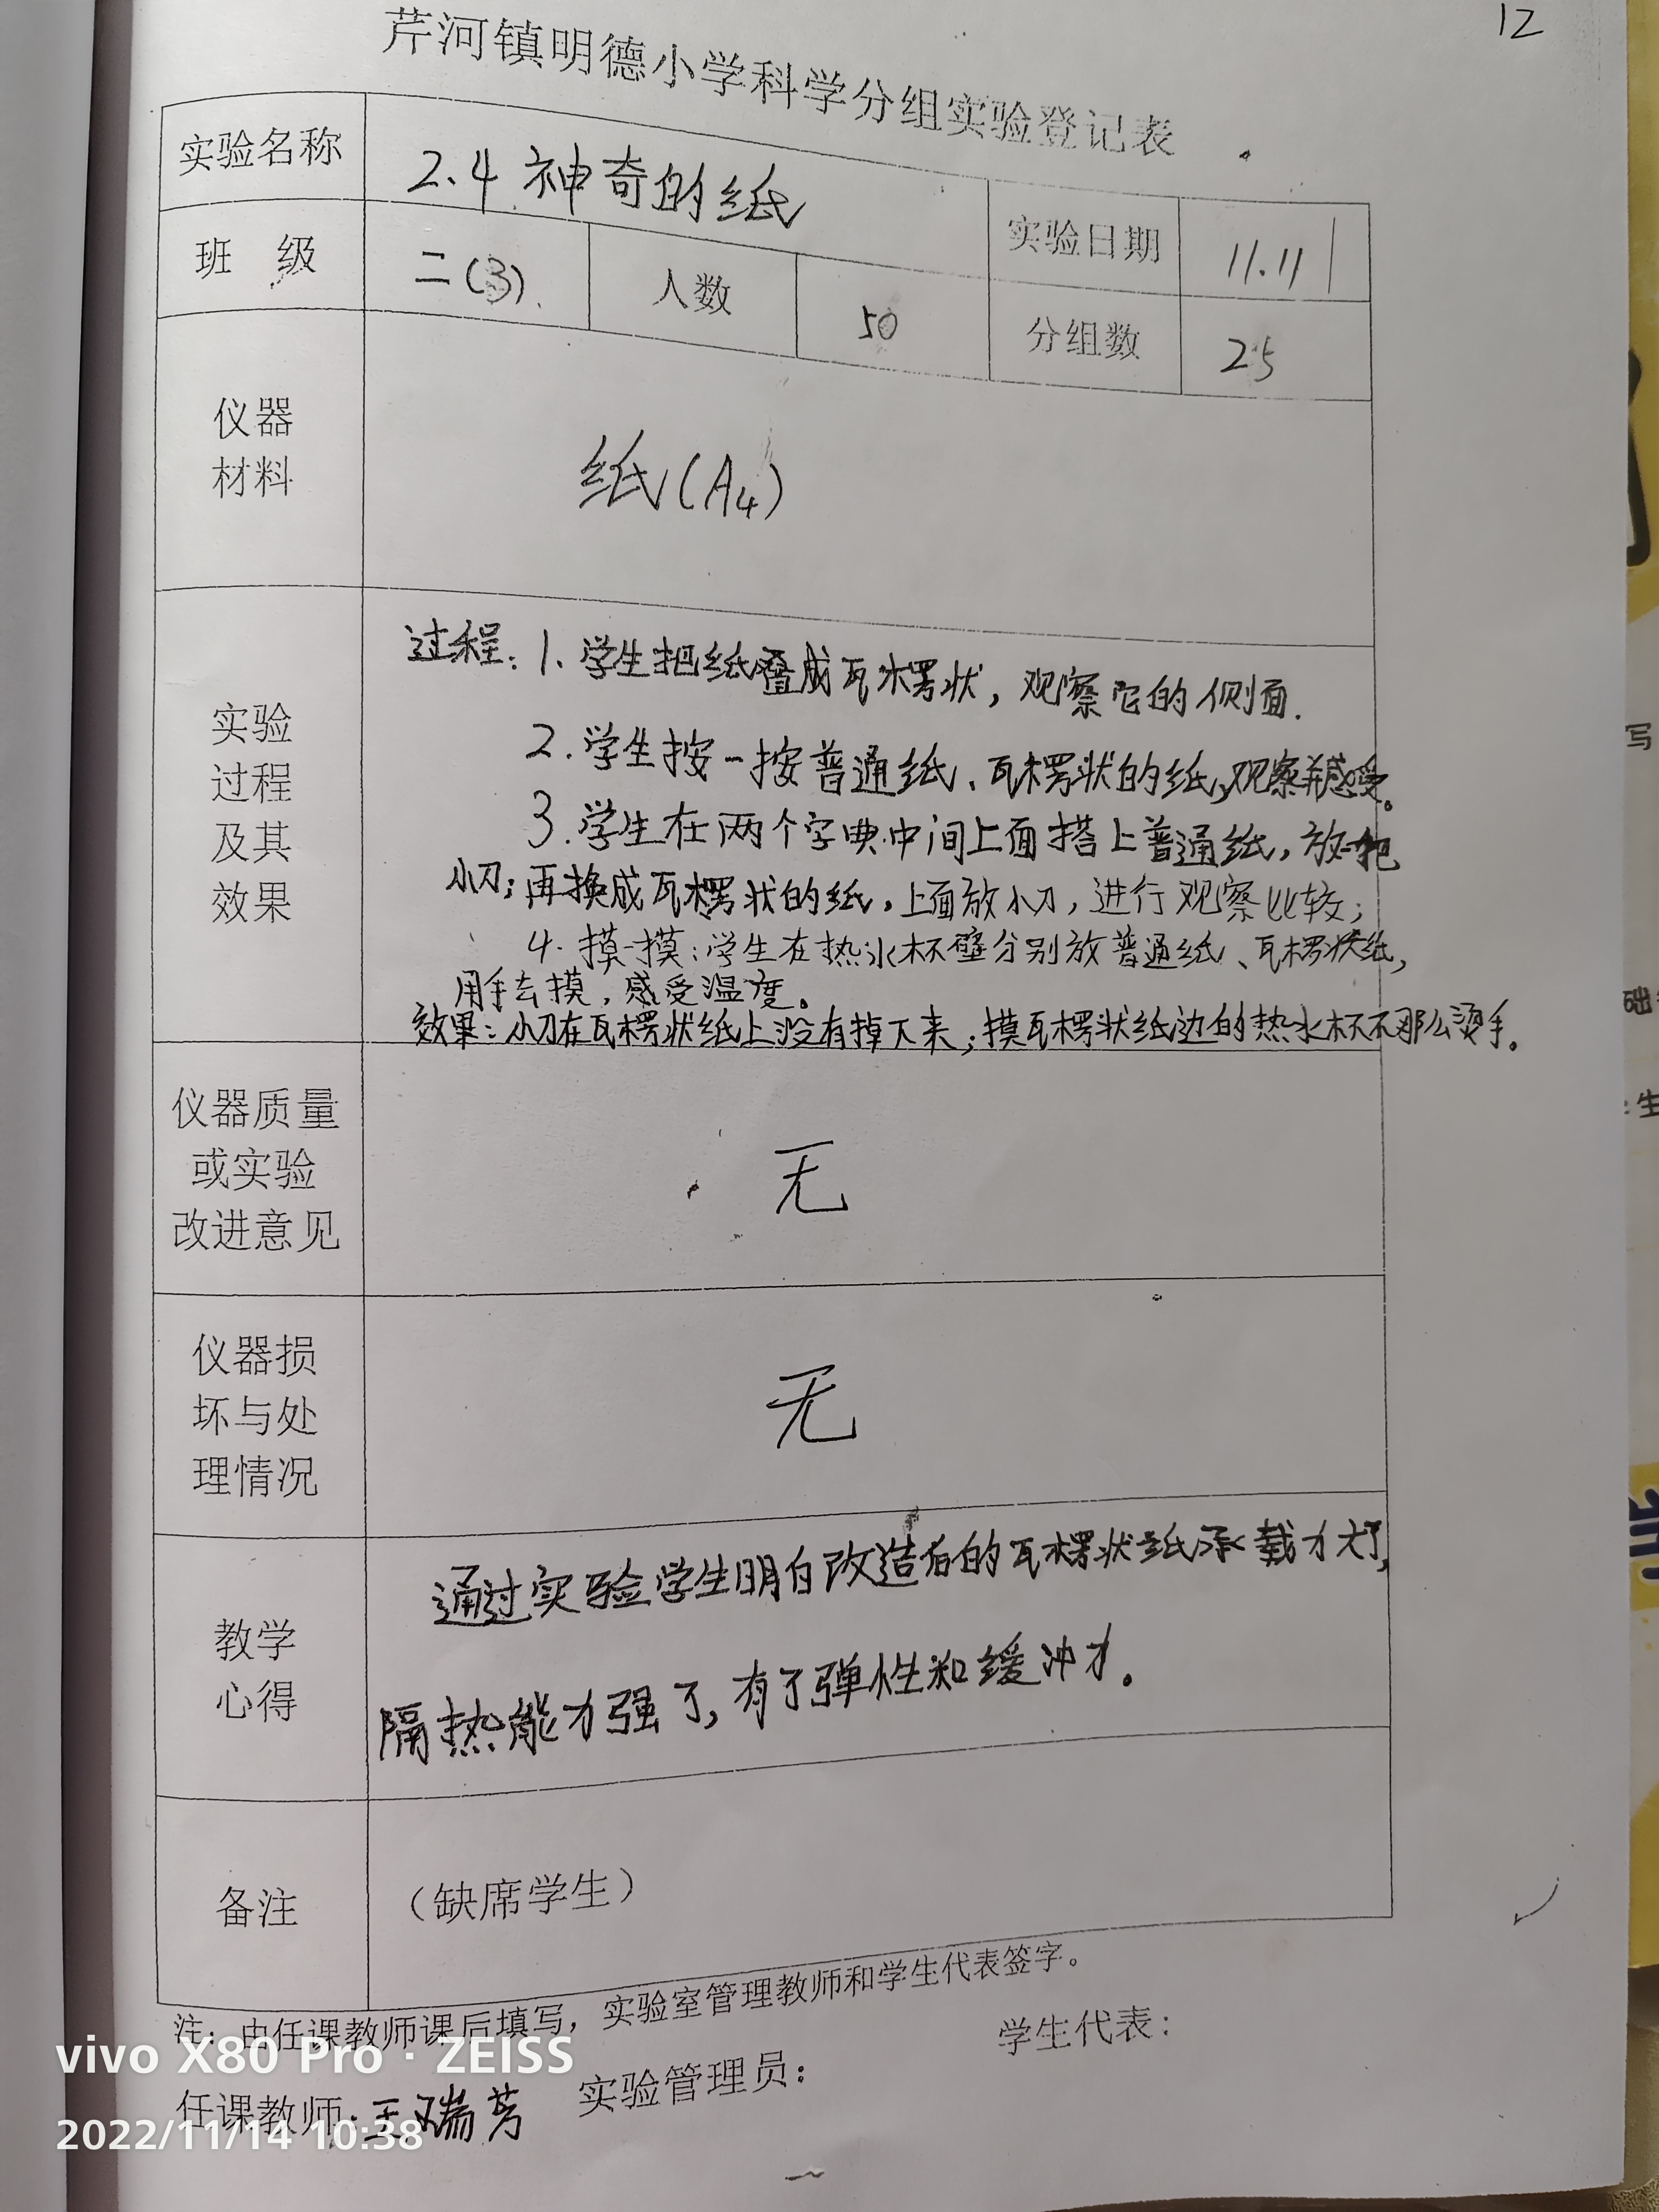 12
芹河镇明德小学科学分组实验登记表
实验名称 2.4 神奇的纸 实验日期 11.11
班 级 二(3). 人数 50 分组数 25
仪器
材料
纸(A4)
实验
过程
及其
效果
过程: 1. 学生把纸叠成瓦楞状, 观察它的侧面.
2. 学生按一按普通纸、瓦楞状的纸,观察并感受。
3. 学生在两个字典中间上面搭上普通纸, 放一把
小刀; 再换成瓦楞状的纸, 上面放小刀, 进行观察比较;
4. 摸一摸: 学生在热水杯壁分别放普通纸、瓦楞状纸,
用手去摸, 感受温度。
效果: 小刀在瓦楞状纸上没有掉下来; 摸瓦楞状纸边的热水杯不那么烫手。
仪器质量
或实验
改进意见
无
仪器损
坏与处
理情况
无
教学
心得
通过实验学生明白改造后的瓦楞状纸承载力大了,
隔热能力强了, 有了弹性和缓冲力。
备注 （缺席学生）
注: 由任课教师课后填写, 实验室管理教师和学生代表签字。
任课教师: 王瑞芳 实验管理员: 学生代表:
vivo X80 Pro · ZEISS
2022/11/14 10:38
写
础
生